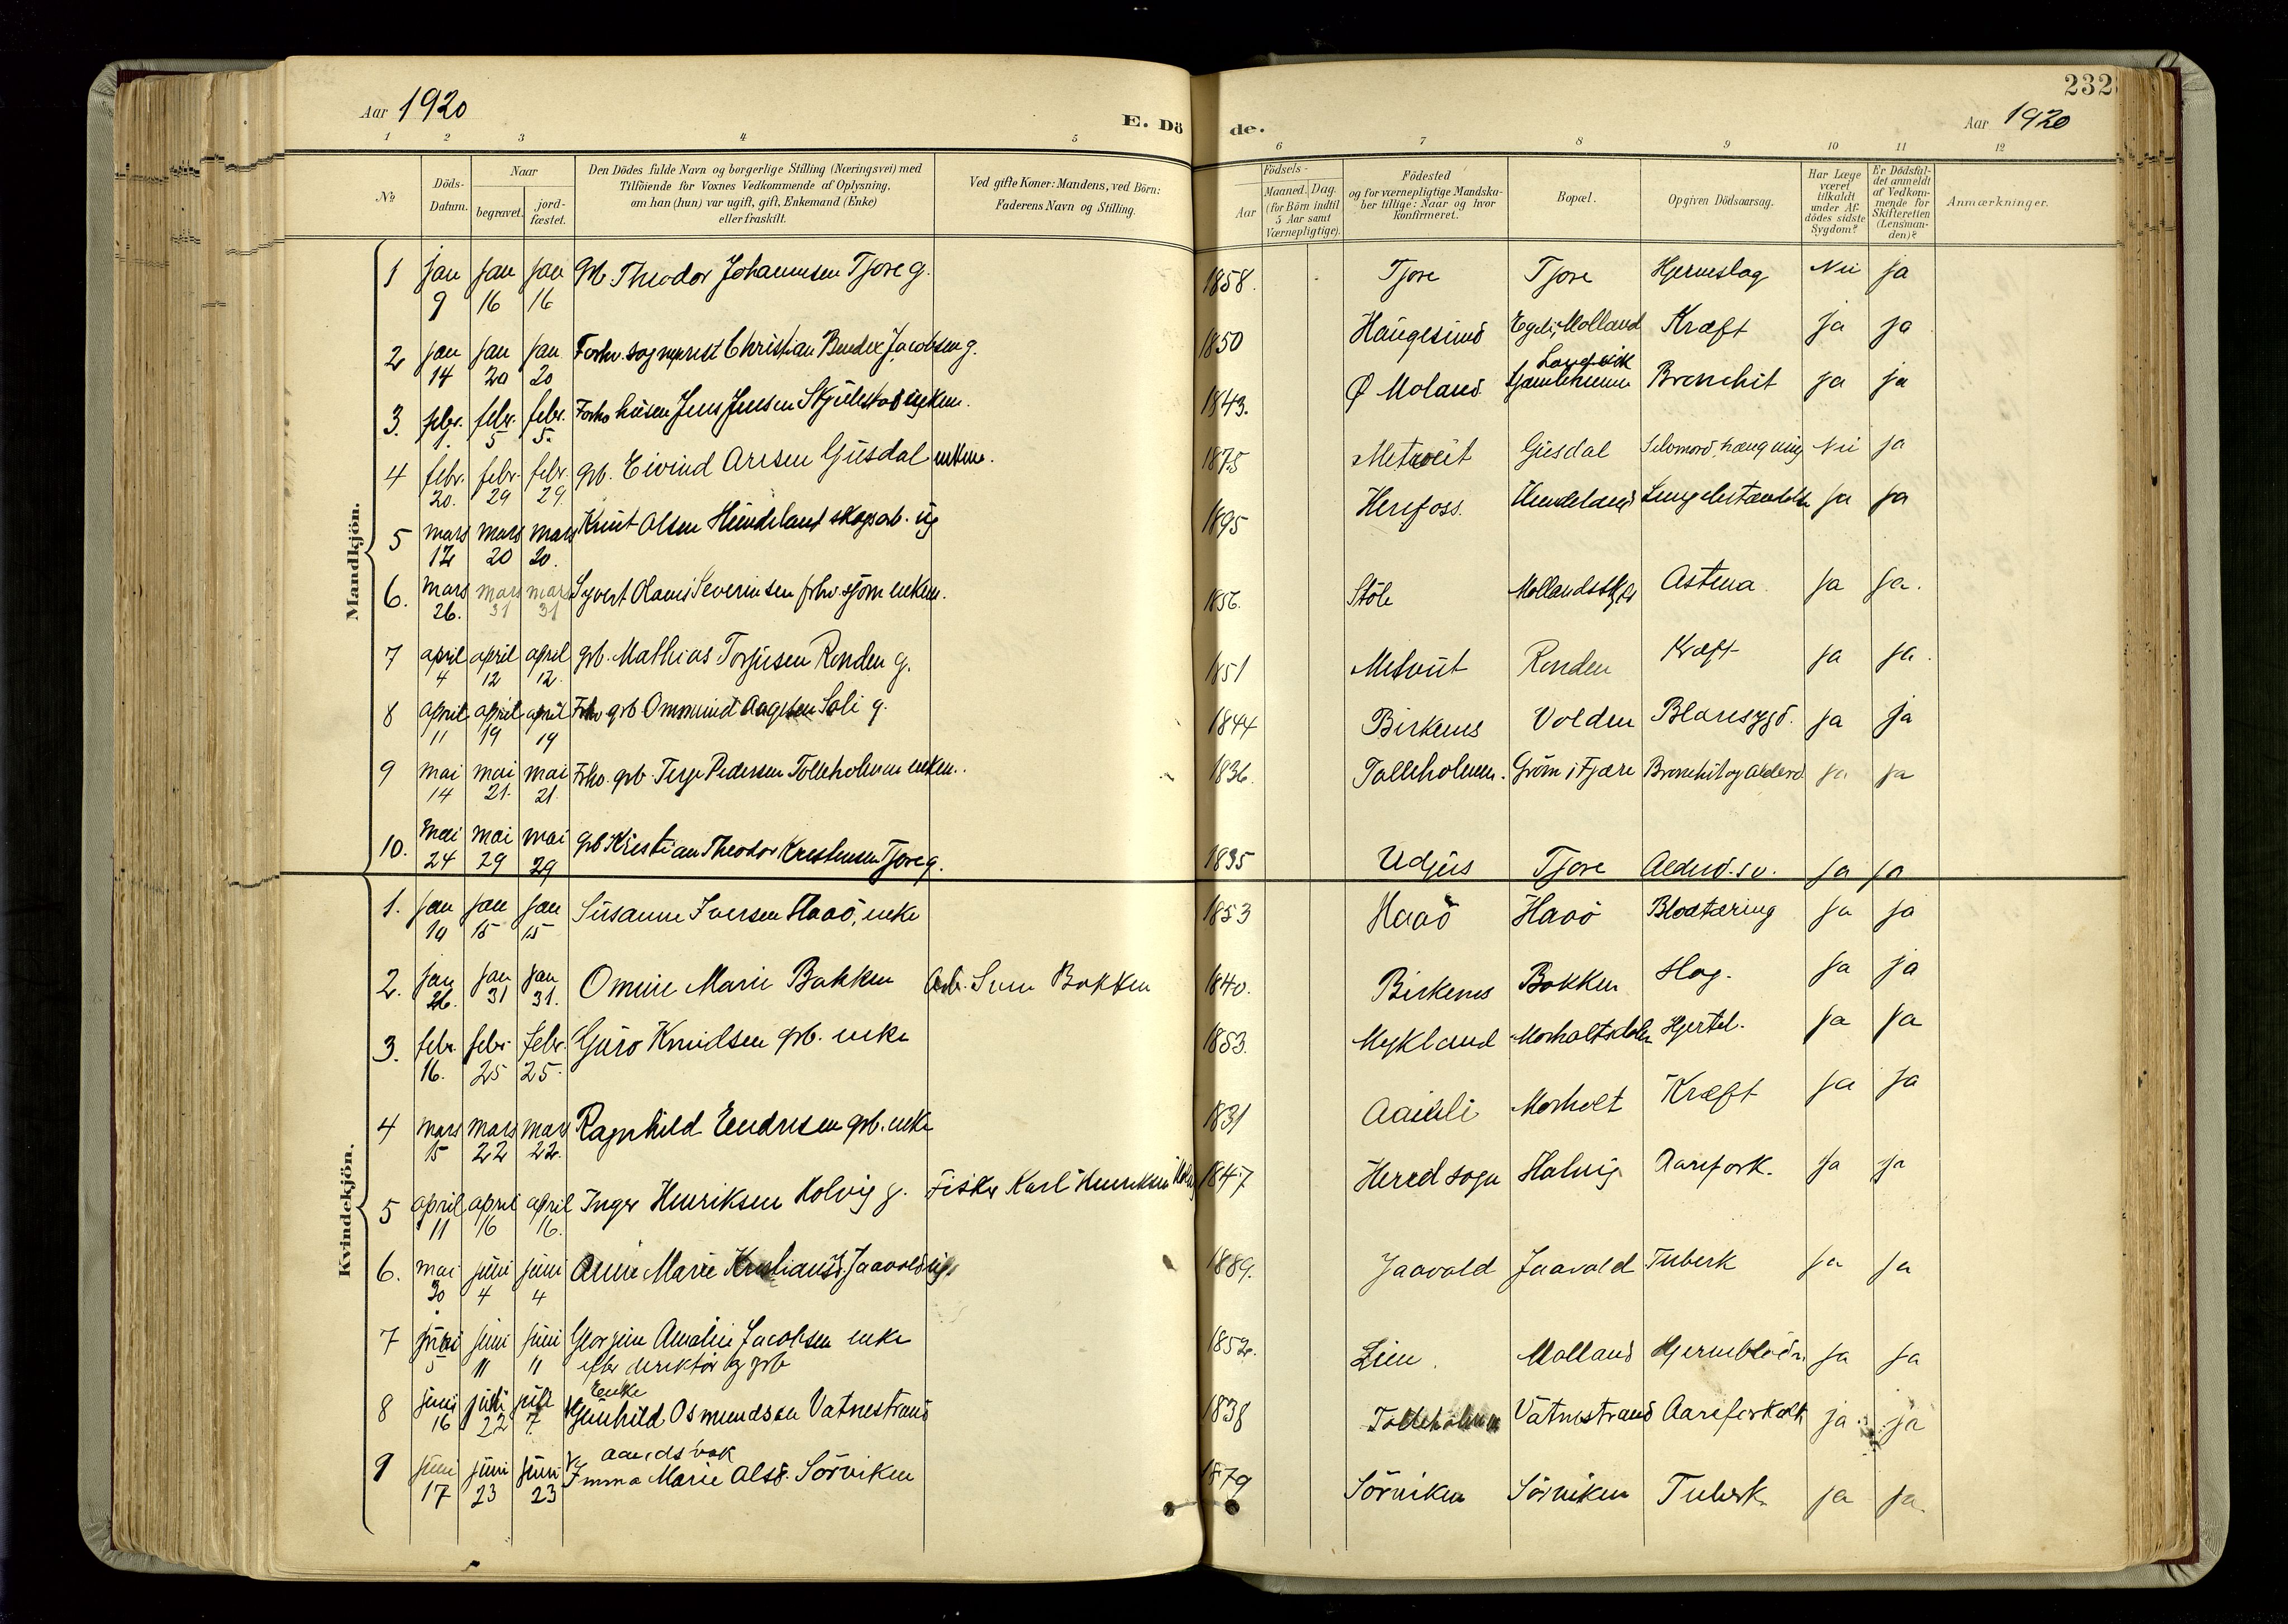 232
Aar 1920
E. Dö de.
Aar 1920
1 2 3 4 5 6 7 8 9 10 11 12
№
Döds-
Datum.
Naar
begravet.
jord-
fæstet.
Den Dödes fulde Navn og borgerlige Stilling (Næringsvei) med
Tilföiende for Voxnes Vedkommende af Oplysning,
om han (hun) var ugift, gift, Enkemand (Enke)
eller fraskilt.
Ved gifte Koner: Mandens, ved Börn:
Faderens Navn og Stilling.
Födsels-
Aar
Maaned. Dag.
(for Börn indtil
5 Aar samt
Værnepligtige).
Födested
og for værnepligtige Mandska-
ber tillige: Naar og hvor
konfirmeret.
Bopæl.
Opgiven Dödsaarsag.
Har Læge
været
tilkaldt
under Af-
dödes sidste
Sygdom?
Er Dödsfal-
det anmeldt
af Vedkom-
mende for
Skifteretten
(Lensman-
den)?
Anmærkninger.
Mandkjön.
1 jan 9 jan 16 jan 16 Gb Theodor Johannsen Tjore g. 1858. Tjore Tjore Hjerneslag Nei ja
2 jan 14 jan 20 jan 20 Forhv. sogneprest Christian Bendix Jacobsen g. 1850 Haugesund Egeli, Molland Kræft ja ja
3. febr. 1. febr. 5 febr. 5. Forhv husm Jens Jensen Skjulestad enkem. 1843. Ø Moland Landvik Bronchit ja ja
4 febr. 20. febr. 29 febr. 29. gb. Eivind Aresen Gusdal enkem. 1875 Metveit Gusdal Selvmord, hængning Nei ja
5 mars 12 mars 20 mars 20. Knut Olsen Hundeland skogarb. ug 1895 Herefoss. Hundeland Lungebetændelse ja ja
6. mars 26. mars 31 mars 31 Syvert Olaus Severinsen fhv. sjöm enkem. 1856. Stöle Mollandsskjær Astma ja ja.
7 april 4 april 12 april 12. gb. Mathias Torjusen Ronden g. 1851 Metveit Ronden Kræft ja ja.
8 april 11 april 19 april 19 Fhv gb Ommund Aagesen Soli g. 1844 Birkenes Volden Blæresygd. ja ja
9 mai 14 mai 21. mai 21. Fhv. gb. Terje Pedersen Tolleholmen enkem. 1836. Tolleholmen. Gröm i Fjære Bronchit og alderd ja ja
10. mai 24 mai 29 mai 29 gb Kristian Theodor Kristensen Tjore g. 1835 Udjus Tjore Alderd. sv. ja ja
Kvindekjön.
1. jan 10 jan 15 jan 15 Susanne Iversen Haaö, enke 1853 Haaö Haaö Blodtæring ja ja
2. jan 26. jan 31 jan 31. Omine Marie Bakken Arb. Sven Bakken 1840. Birkenes Bakken Slag. ja ja
3. febr. 16. febr. 25 febr. 25. Guro Knudsen gb. enke 1853. Mykland Morholtsdalen Hjertel. ja ja
4 mars 15 mars 22 mars 22. Ragnhild Eendresen gb. enke 1831 Morholt Kræft ja ja
5 april 11 april 16 april 16. Inger Henriksen Holvig g. Fisker Karl Henriksen Holvig 1847 Hered sogn Holvig Aarefork. ja ja
6. mai 30 juni 4 juni 4 Anne Marie Kristiansd. Jaavold ug. 1889. Jaavold Jaavold Tuberk ja ja
7 juni 5 juni 11 juni 11 Georgine Amalie Jacobsen enke
efter direktör og gb 1852. Lien. Molland Hjerneblödn. ja ja
8 juni 16 juni 22 juli 7. Enke
Gunhild Osmundsen Vatnestrand 1838 Tolleholmen Vatnestrand Aareforkalk ja ja
9 juni 17 juni 23 juni 23 aandsvak
Imma Marie Olsd. Sörviken 1879 Sörviken Sörviken Tuberk. ja ja